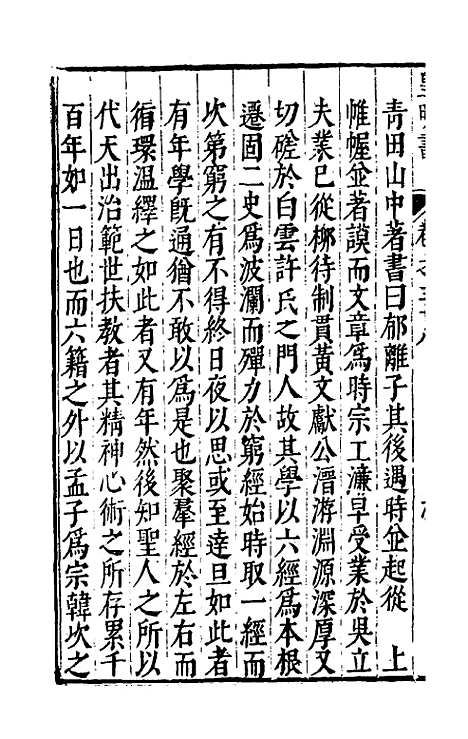 青田山中著書曰郁離子其後遇時並起從　上
帷幄並著謨而文章爲時宗工濂早受業於吳立
夫業已從栁待制貫黃文獻公溍游淵源深厚又
切磋於白雲許氏之門人故其學以六經爲本根
遷固二史爲波瀾而殫力於窮經始時取一經而
次第窮之有不得終日夜以思或至達旦如此者
有年學旣通猶不敢以爲是也聚羣經於左右而
循環溫繹之如此者又有年然後知聖人之所以
代天出治範世扶教者其精神心術之所存累千
百年如一日也而六籍之外以孟子爲宗韓次之